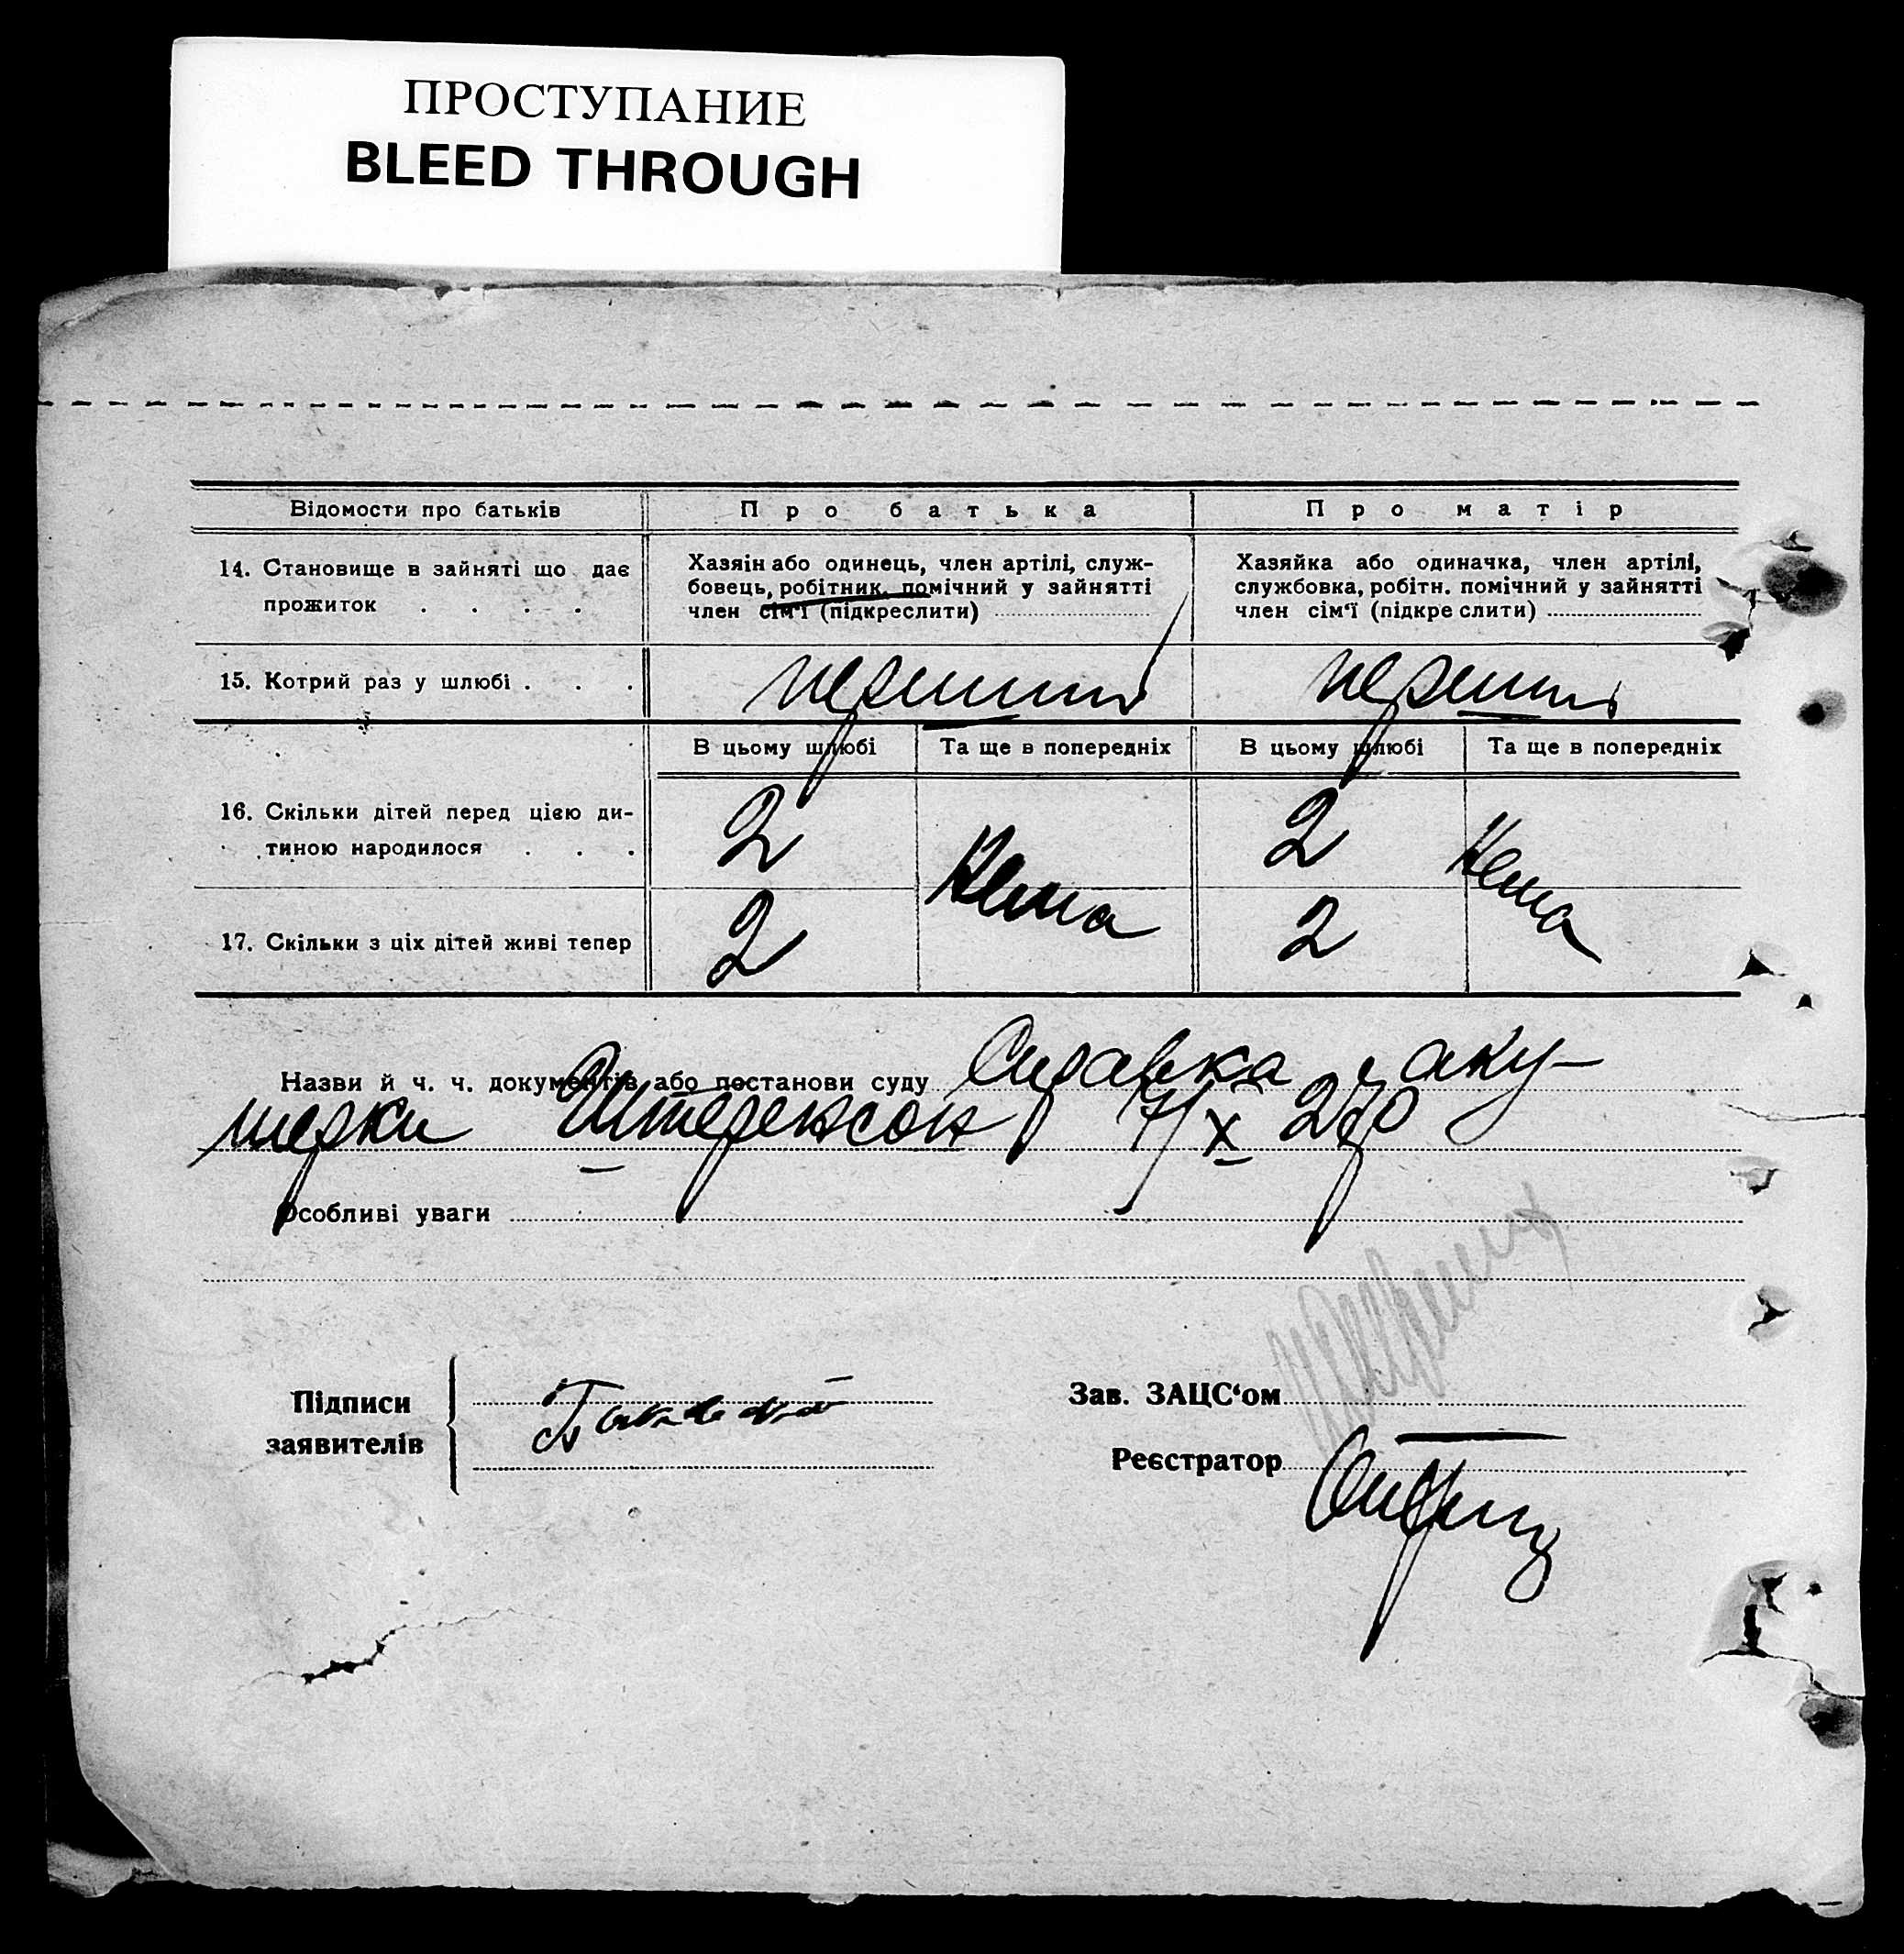 ПРОСТУПАНИЕ
BLEED THROUGH
Відомости про батьків
Про батька
Про матір
14. Становище в зайняті що дає
прожиток . . . .
Хазяін або одинець, член артілі, служ-
бовець, робітник, помічний у зайнятті
член сім'ї (підкреслити)
Хазяйка або одиначка, член артілі,
службовка, робітн. помічний у зайнятті
член сім'ї (підкре слити)
15. Котрий раз у шлюбі . . .
перший
перший
В цьому шлюбі
Та ще в попередніх
В цьому шлюбі
Та ще в попередніх
16. Скільки дітей перед цією ди-
тиною народилося . . .
2
Нема
2
Нема
17. Скільки з ціх дітей живі тепер
2
2
Назви й ч. ч. документів або постанови суду Справка аку-
шерки 7/X 27р
Особливі уваги
Підписи
заявителів
Зав. ЗАЦС'ом
Реєстратор